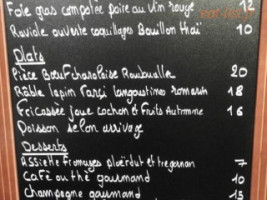 Foie gras compotée poire au vin rouge 12
Raviole ouverte coquillages Bouillon thaï 10
Plats
Pièce Boeuf charolaise Roubualle 20
Rable lapin farçi langoustines romarin 18
Fricassée joue cochon et fruits Automne 16
Poisson selon arrivage
Desserts
Assiette fromages ploërdut et tregernan 7
Café ou thé gourmand 10
Champagne gourmand 15